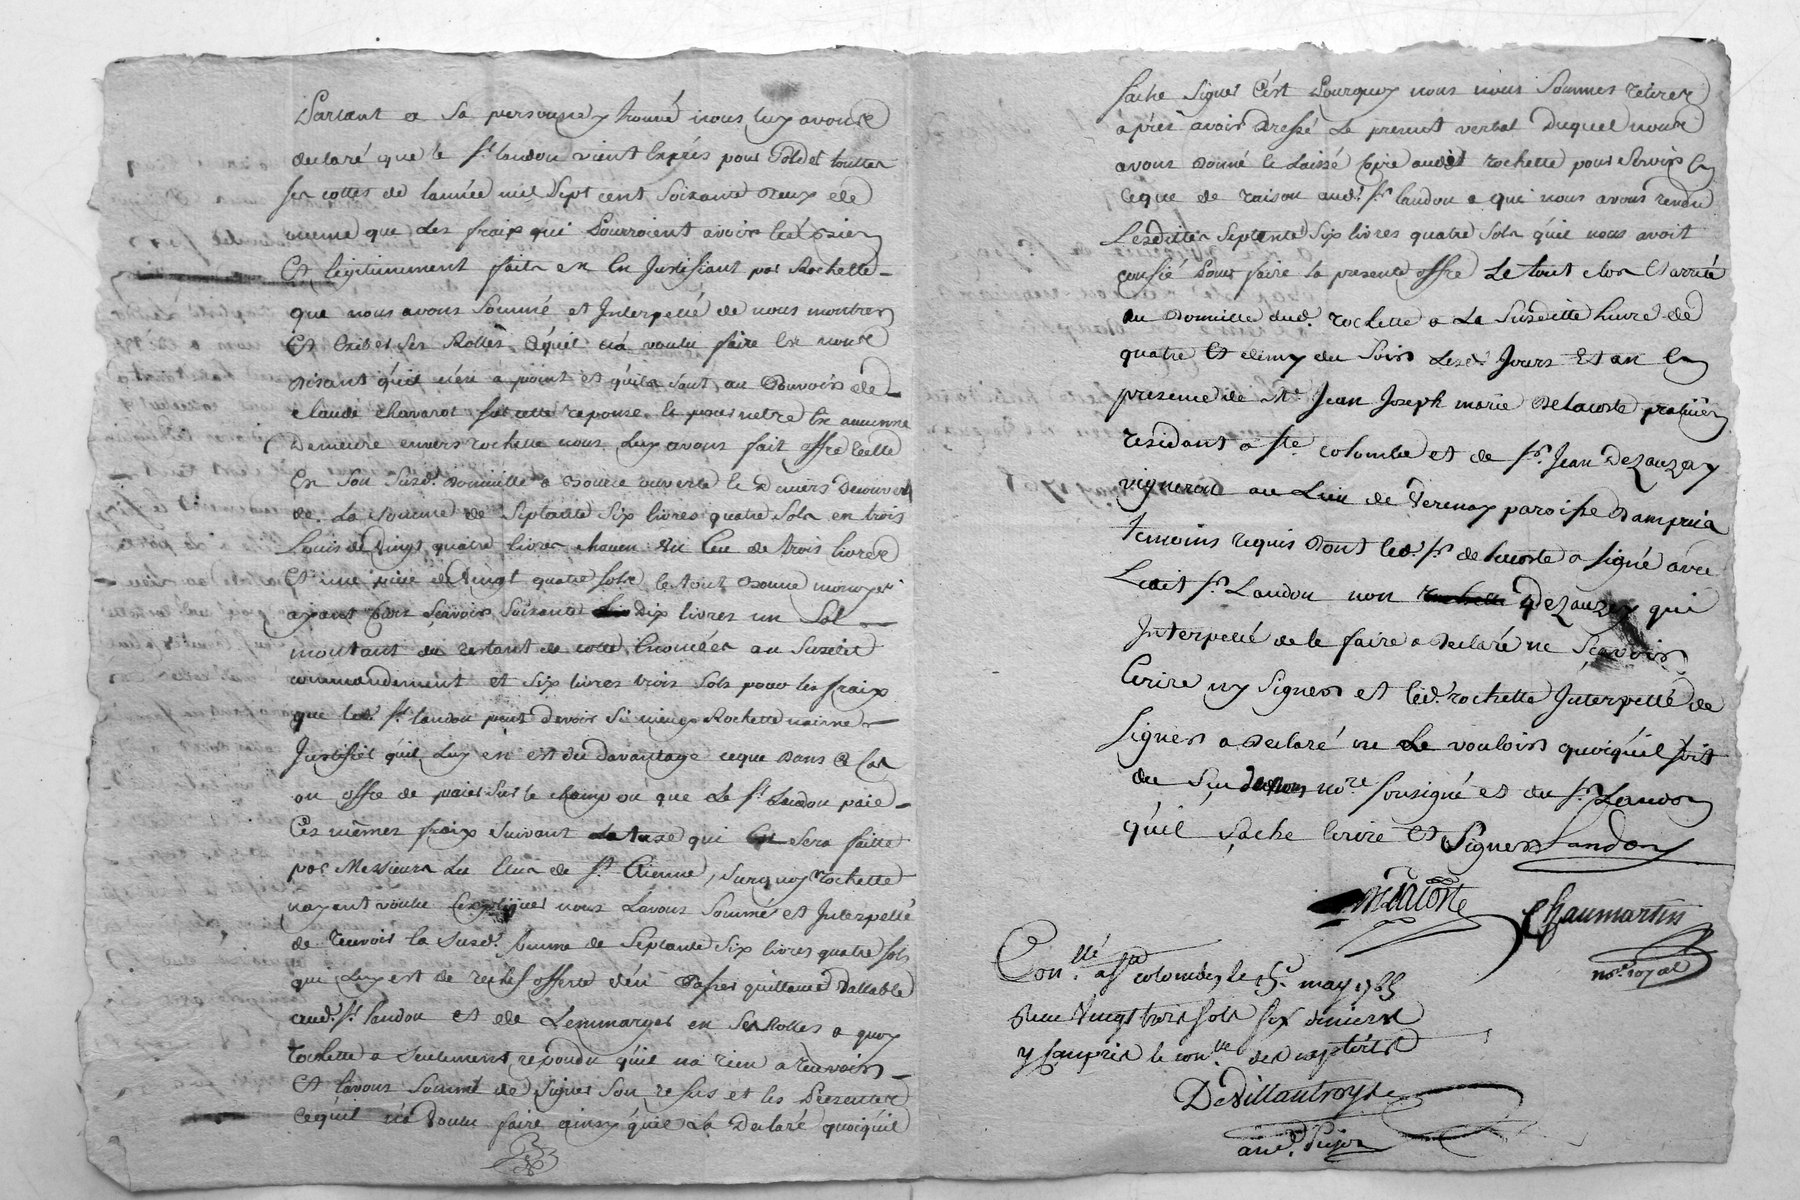 Parlant a Sa personne y trouvé nous luy avons
declaré que le Sr. landon vient Exprés pour Solder touttes
ses cottes de lannée mil Sept cent Soixante Deux de
meme que Les fraix qui Pourroient avoir été
Et légitimement faits en En Justifiant par Rochette
que nous avons Sommé et Interpellé de nous montrer
Et Exiber Ses Rolles Ce qu'il na voulu faire En nous
disant qu'il n'en a point et qu'ils sont au Pouvoir de
claude Chavarot sur cette reponse & pour netre En aucunne
Demeure envers rochette nous Luy avons fait offre réelle
En Son Susd. Domicille a Bource ouverte & Deniers Decouverts
de La Somme de Septante Six livres quatre Sols en trois
Louis de Vingt quatre livres chacun Un Ecu de trois livres
Et une piece de Vingt quatre sols le tout Bonne monoye
ayant Cours Scavoir Soixante Dix livres un Sol
montant du restant de cotte Enoncées au Susdit
commandement et Six livres trois Sols pour les fraix
que led. Sr. landon peut devoir Si mieux Rochette naime
Justifier qu'il Luy en est du davantage ceque Dans Ce Cas
on offre de paier Sur le champ ou que Le Sr Landon paie
Ces mêmes fraix suivant La taxe qui En Sera faitte
par Messieurs Les Elus de St. Etienne, Surquoy rochette
nayant voulu S'expliquer nous Lavons Sommé et Interpellé
de recevoir la Susd. Somme de Septante Six livres quatre sols
qui Luy est de rechef offerte d'en Passer quittance Vallable
aud. Sr. landon et de Lemmarger en Ses Rolles a quoy
rochette a Seulement repondu qu'il na rien a recevoir
Et lavons Sommé de Signer Son refus et les Presentes
Cequ'il n'a Voulu faire ainsy qu'il La Declaré quoiqu'il
sache Signer C'est Pourquoy nous nous Sommes retirez
aprés avoir Dressé Le present verbal Duquel nous
avons donné & Laissé Copie audit rochette pour Servir
Ceque de raison aud. Sr. landon a qui nous avons rendu
Lesdittes Septente Six livres quatre Sols qu'il nous avoit
confié Pour faire la presente offre Le tout clos Et arreté
au Domicille dud. rochette a La Susditte heure de
quatre Et demy du Soir Lesd. Jours Et an En
presence de Me. Jean Joseph marie Delacoste praticien
residant a Ste colombe et de Sr. Jean Dezauzay
vigneron au Lieu de Verenay paroisse Dampuis
temoins requis Dont led. Sr. de lacoste a signé avec
Ledit Sr. Landon non Dezauzay qui
Interpellé de le faire a Declaré ne Scavoir
Ecrire ny Signer et led. rochette Interpellé de
Signer a Declaré ne Le vouloir quoiqu'il soit
du Sçu de nous nore. soussigné et du Sr. Landon
qu'il Sache Ecrire Et Signer Landon
Delacoste
Chaumartin
nore. royal
Conllé. a Ste colombe, le 15e. may 1763
Reçu Vingt trois sols six deniers
y compris le conlle des
DeVillantroys